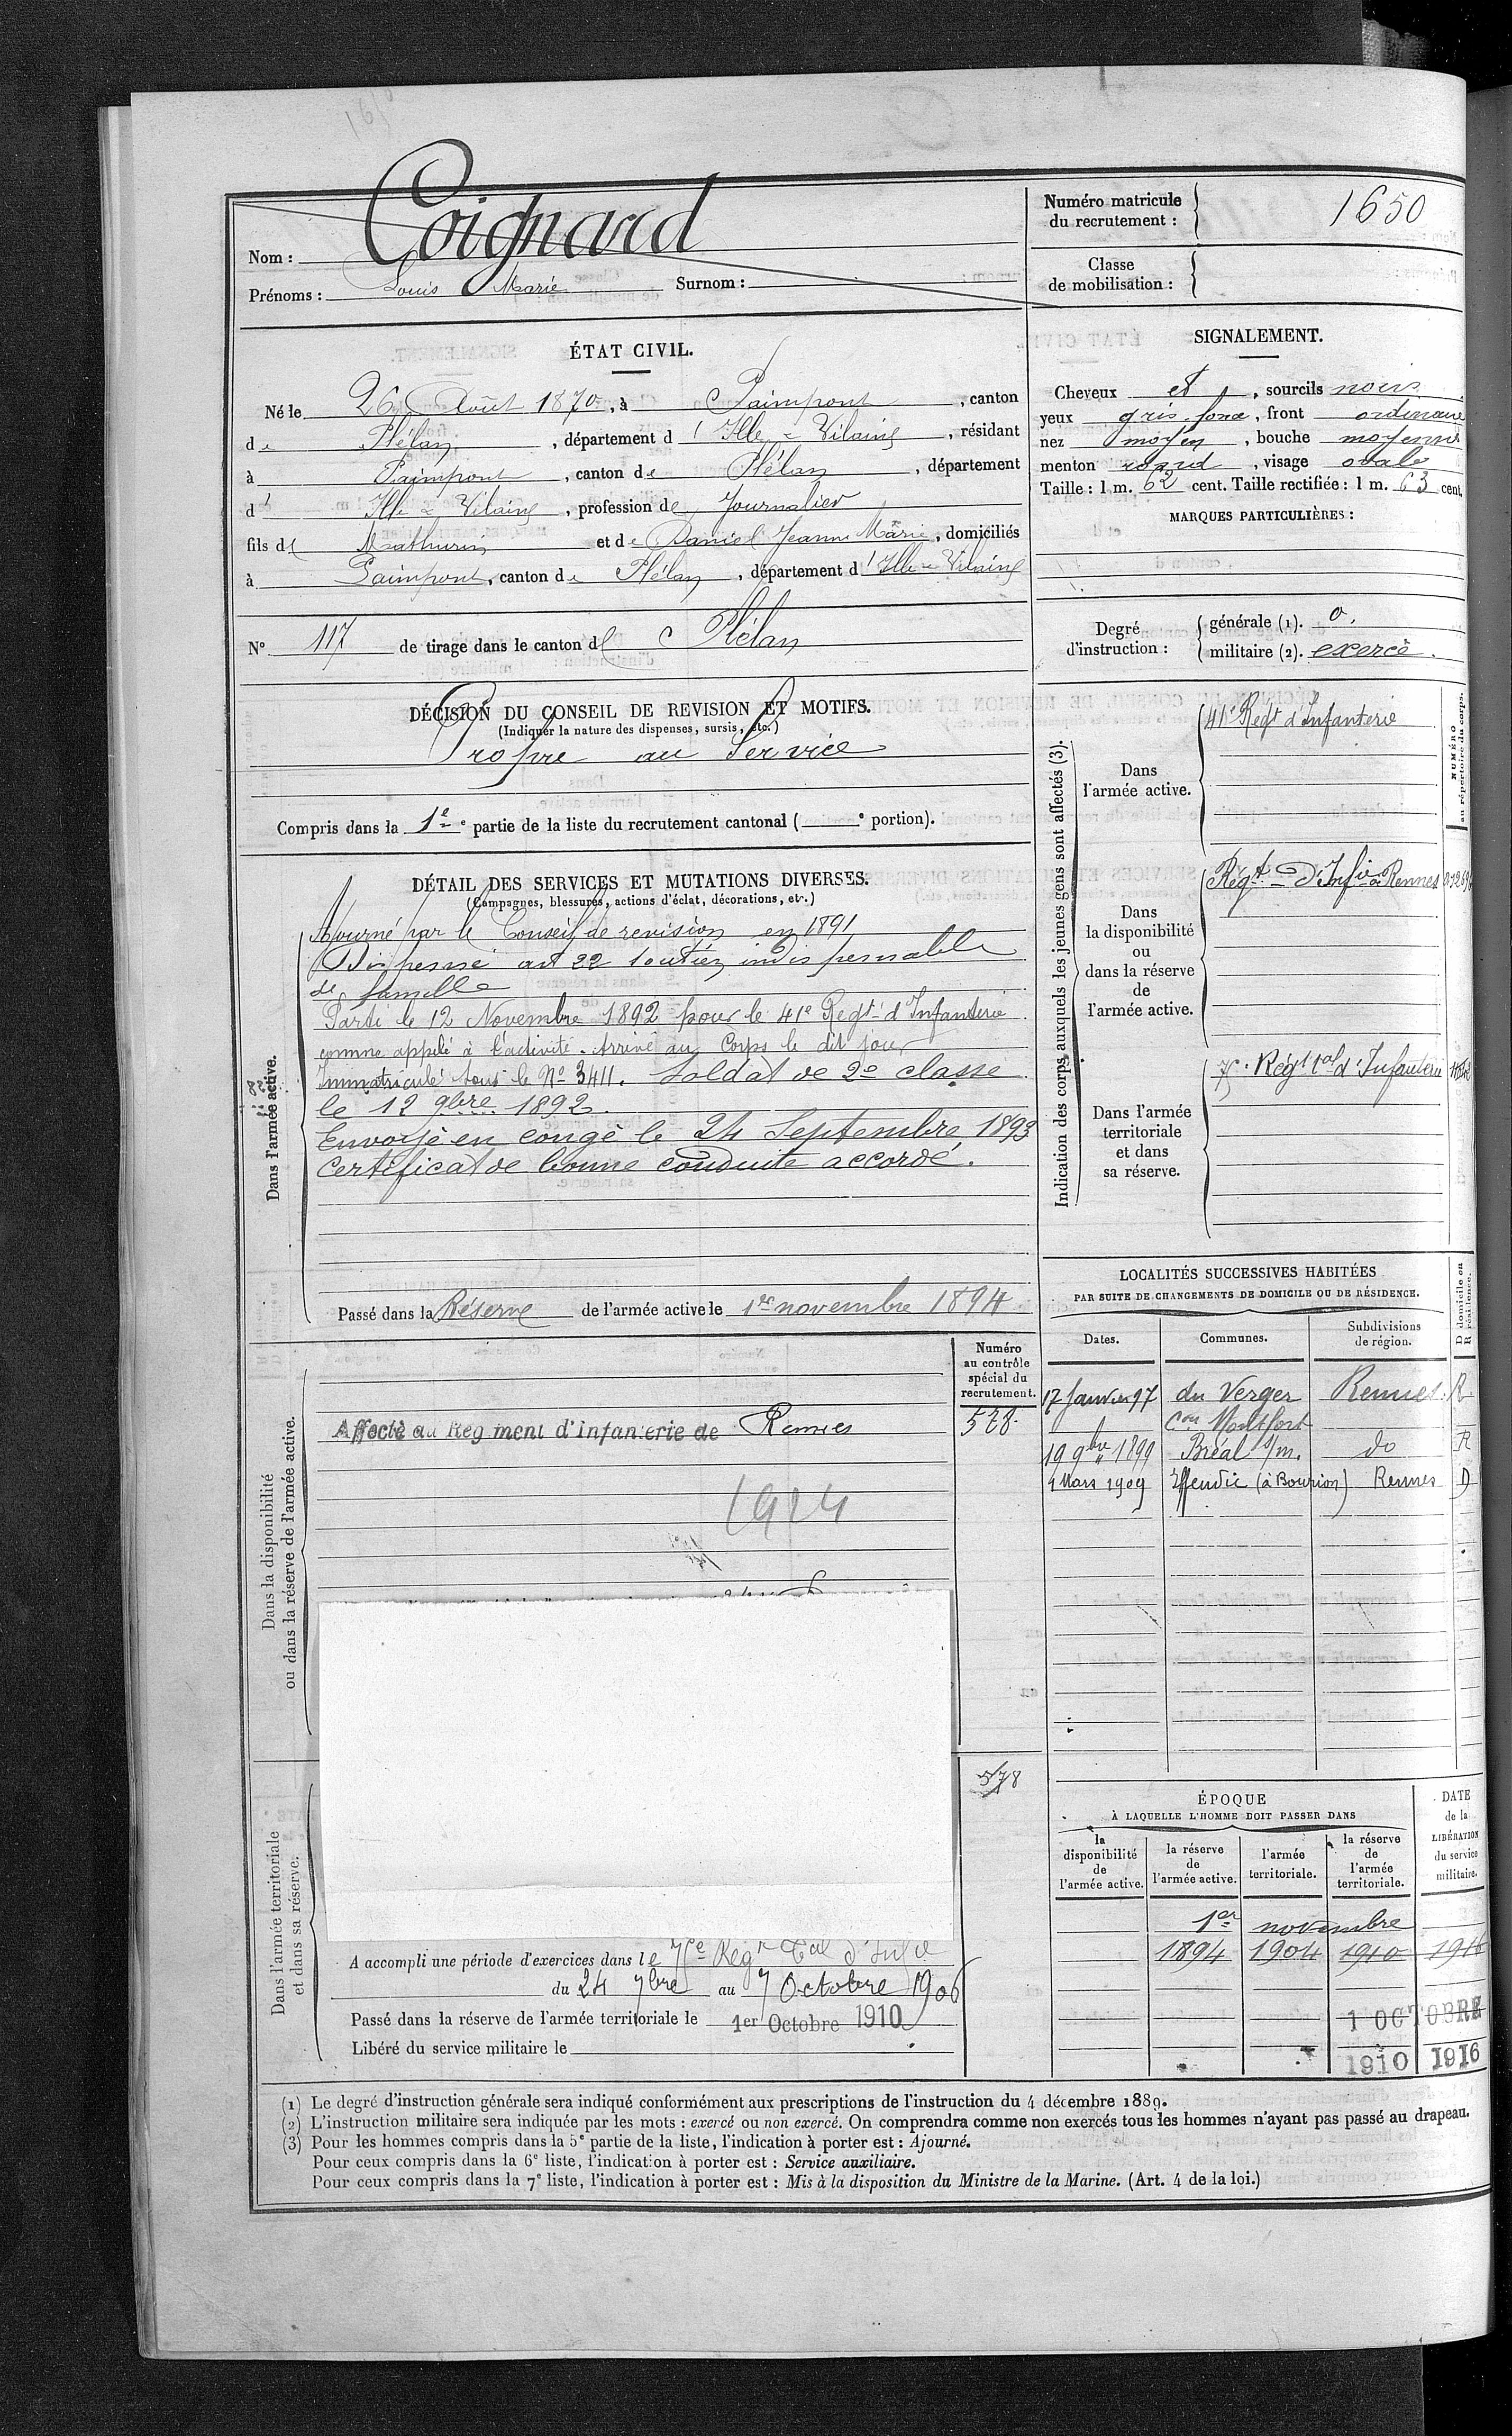 Numéro matricule
du recrutement : 1650
Nom : Coignard
Prénoms : Louis Marie Surnom :
Classe
de mobilisation :
ÉTAT CIVIL.
Né le 26 Août 1870, à Paimpont, canton
de Plélan, département d'Ille & Vilaine, résidant
à Paimpont, canton de Plélan, département
d'Ille & Vilaine, profession de Journalier
fils de Mathurin et de Daniel Jeanne Marie, domiciliés
à Paimpont, canton de Plélan, département d'Ille & Vilaine
N° 117 de tirage dans le canton de Plélan
SIGNALEMENT.
Cheveux et, sourcils noirs
yeux gris foncé, front ordinaire
nez moyen, bouche moyenne
menton rond, visage ovale
Taille : 1 m. 62 cent. Taille rectifiée : 1 m. 63 cent.
MARQUES PARTICULIÈRES :
Degré
d'instruction :
générale (1). 0.
militaire (2). exercé.
DÉCISION DU CONSEIL DE REVISION ET MOTIFS.
(Indiquer la nature des dispenses, sursis, etc.)
Propre au Service
Compris dans la 1e partie de la liste du recrutement cantonal ( e portion).
DÉTAIL DES SERVICES ET MUTATIONS DIVERSES.
(Campagnes, blessures, actions d'éclat, décorations, etc.)
Dans l'armée active.
Ajourné par le Conseil de revision en 1891
Dispensé art 22 soutien indispensable
de famille
Parti le 12 Novembre 1892 pour le 41e Regt d'Infanterie
comme appelé à l'activité. Arrivé au Corps le dit jour
Immatriculé sous le No 3411. Soldat de 2e classe
le 12 9bre 1892.
Envoyé en congé le 24 Septembre 1893
Certificat de bonne conduite accordé.
Passé dans la Réserve de l'armée active le 1er novembre 1894
Indication des corps auxquels les jeunes gens sont affectés (3).
NUMÉRO
au répertoire du corps.
Dans
l'armée active.
41e Regt d'Infanterie
Dans
la disponibilité
ou
dans la réserve
de
l'armée active.
Regt d'Infie Rennes
Dans l'armée
territoriale
et dans
sa réserve.
75e Régt tal d'Infanterie
LOCALITÉS SUCCESSIVES HABITÉES
PAR SUITE DE CHANGEMENTS DE DOMICILE OU DE RÉSIDENCE.
D domicile ou
R résidence.
Dates. Communes. Subdivisions
de région.
17 Janvier 97 du Verger Rennes. R
Con Montfort
19 9bre 1899 Bréal s/m. do R
1 Mars 1909 Iffendic (à Boutrion) Rennes D
Dans la disponibilité
ou dans la réserve de l'armée active.
Numéro
au contrôle
spécial du
recrutement.
Affecté au Régiment d'Infanterie de Rennes 578
1914
Dans l'armée territoriale
et dans sa réserve.
578
A accompli une période d'exercices dans le 75e Regt tal d'Infie
du 24 7bre au 7 Octobre 1906
Passé dans la réserve de l'armée territoriale le 1er Octobre 1910
Libéré du service militaire le
ÉPOQUE
À LAQUELLE L'HOMME DOIT PASSER DANS
la
disponibilité
de
l'armée active.
la réserve
de
l'armée active.
l'armée
territoriale.
la réserve
de
l'armée
territoriale.
DATE
de la
LIBÉRATION
du service
militaire.
1er novembre
1894 1904 1910 1916
1 OCTOBRE
1910 1916
(1) Le degré d'instruction générale sera indiqué conformément aux prescriptions de l'instruction du 4 décembre 1889.
(2) L'instruction militaire sera indiquée par les mots : exercé ou non exercé. On comprendra comme non exercés tous les hommes n'ayant pas passé au drapeau.
(3) Pour les hommes compris dans la 5e partie de la liste, l'indication à porter est : Ajourné.
Pour ceux compris dans la 6e liste, l'indication à porter est : Service auxiliaire.
Pour ceux compris dans la 7e liste, l'indication à porter est : Mis à la disposition du Ministre de la Marine. (Art. 4 de la loi.)